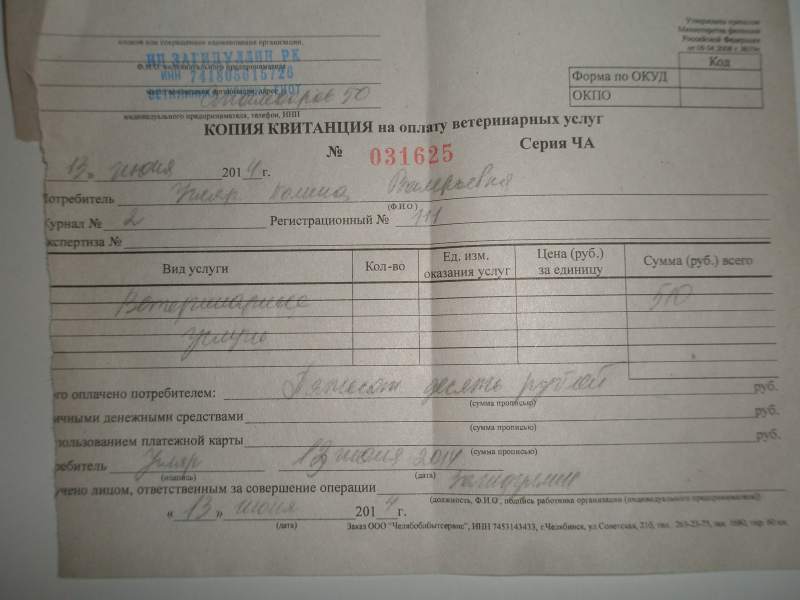 Утверждена приказом
Министерства финансов
Российской Федерации
от 09.04.2008 г.
полное или сокращенное наименование организации,
ИП ЗАГИДУЛЛИН РК
Ф.И.О. индивидуального предпринимателя
ИНН 741806615726
место нахождения организации, адрес
Сталеваров 50
индивидуального предпринимателя, телефон, ИНН
Код
Форма по ОКУД
ОКПО
КОПИЯ КВИТАНЦИЯ на оплату ветеринарных услуг
№ 031625 Серия ЧА
13 » июня 2014 г.
отребитель Валерьевна
(Ф.И.О.)
урнал № 2 Регистрационный № 111
кспертиза №
Вид услуги Кол-во Ед. изм. оказания услуг Цена (руб.) за единицу Сумма (руб.) всего
Ветеринарные 510
услуги
го оплачено потребителем: Пятьсот десять рублей руб.
(сумма прописью)
ичными денежными средствами руб.
(сумма прописью)
пользованием платежной карты руб.
(сумма прописью)
ребитель 13 июня 2014
(подпись) (дата)
учено лицом, ответственным за совершение операции
(должность, Ф.И.О., подпись работника организации (индивидуального предпринимателя))
« 13 » июня 2014 г.
(дата)
Заказ ООО "Челябобытсервис", ИНН 7453143433, г.Челябинск, ул.Советская, 210, тел. 263-23-75,